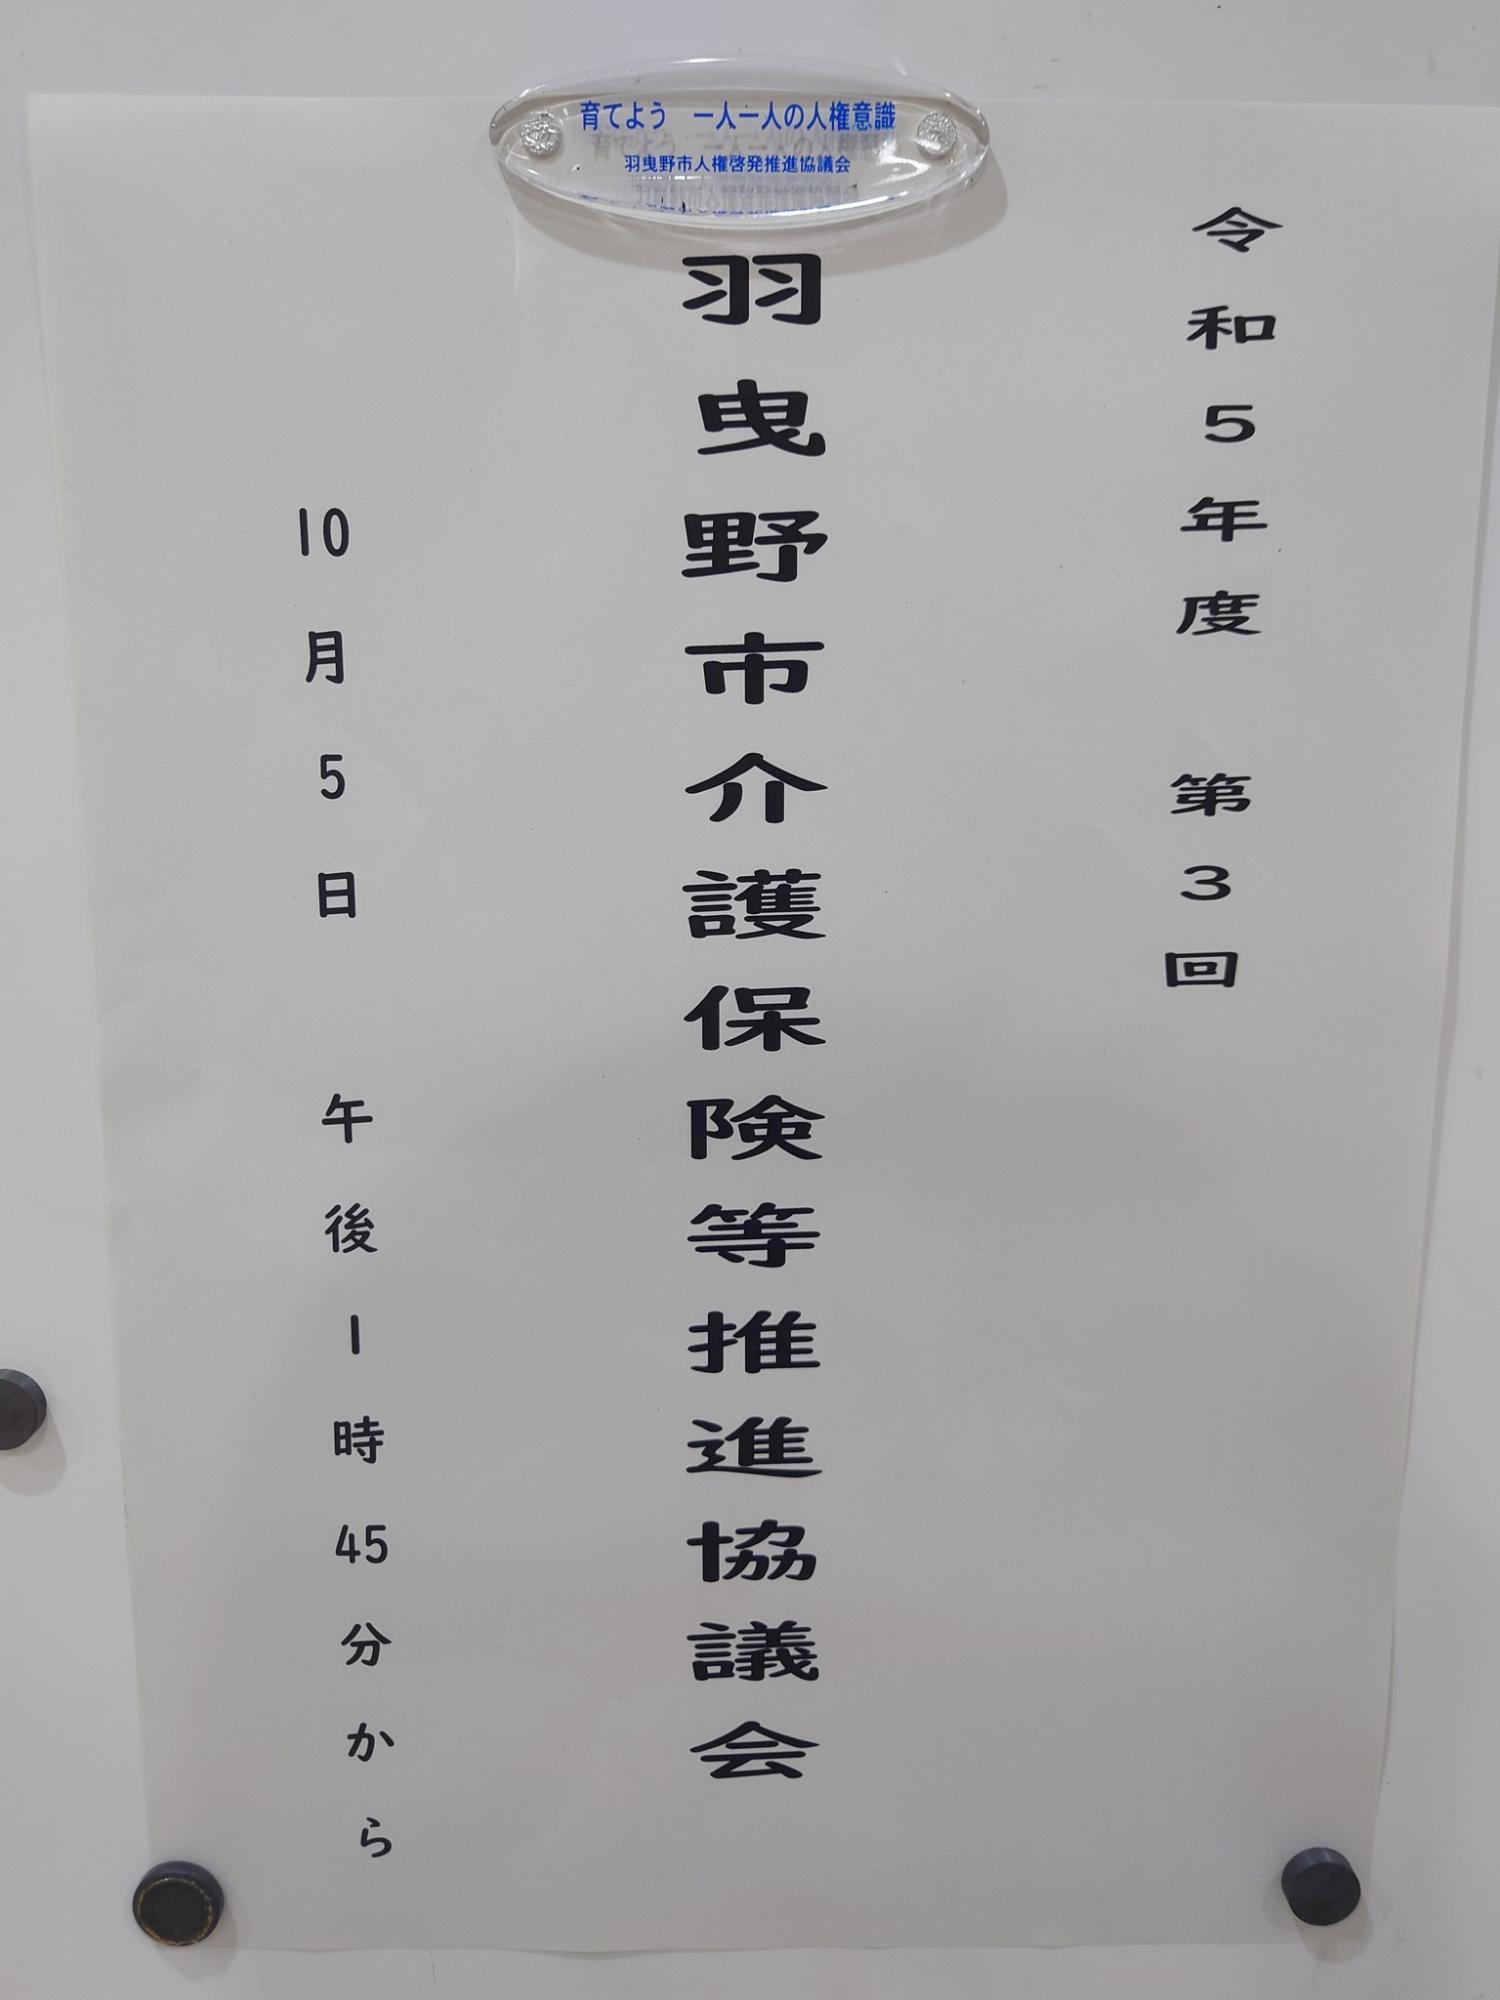 育てよう　一人一人の人権意識
羽曳野市人権啓発推進協議会
令和5年度　第3回
羽曳野市介護保険等推進協議会
10月5日　午後1時45分から